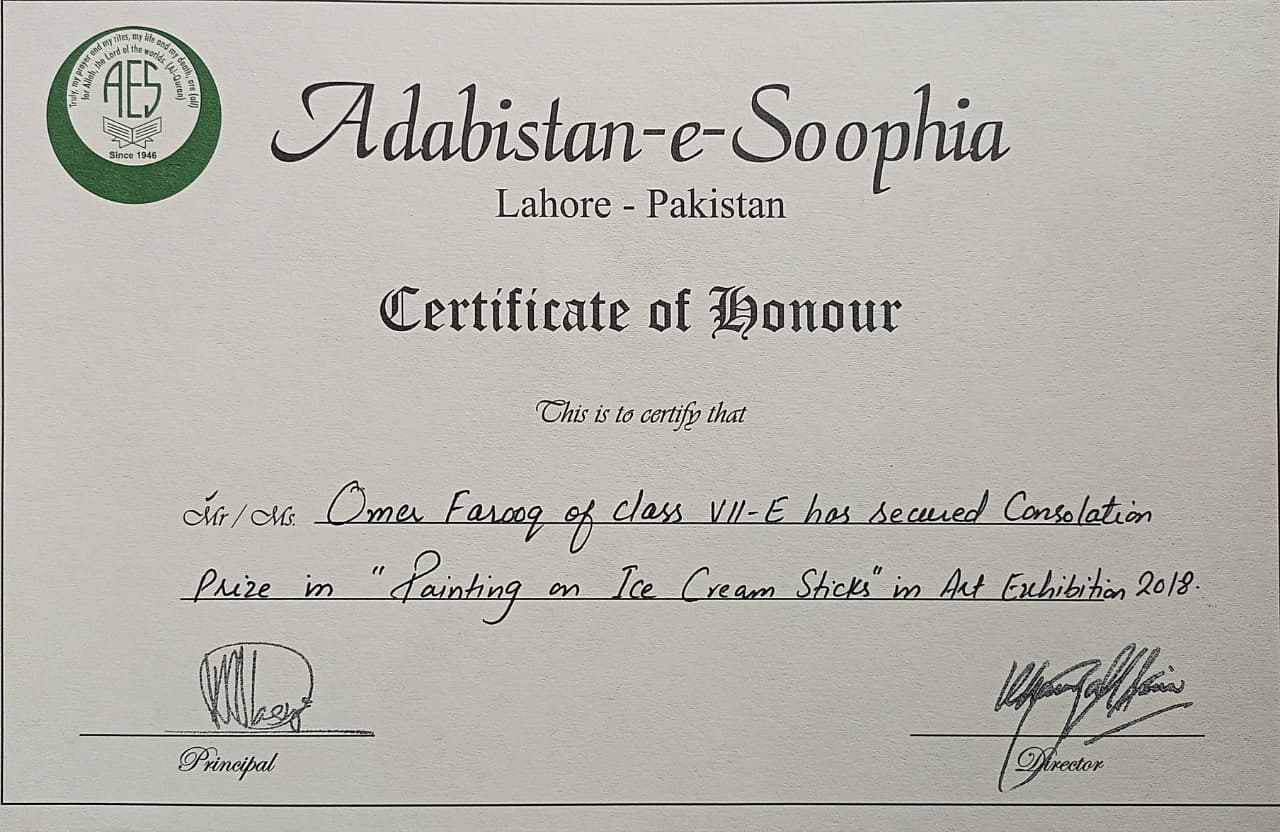 Truly, my prayer and my rites, my life and my death, are (all)
for Allah, the Lord of the worlds. (Al-Quran)
AES
Since 1946
Adabistan-e-Soophia
Lahore - Pakistan
Certificate of Honour
This is to certify that
Mr / Ms. Omer Farooq of class VII-E has secured Consolation
Prize in "Painting on Ice Cream Sticks" in Art Exhibition 2018.
Principal
Director